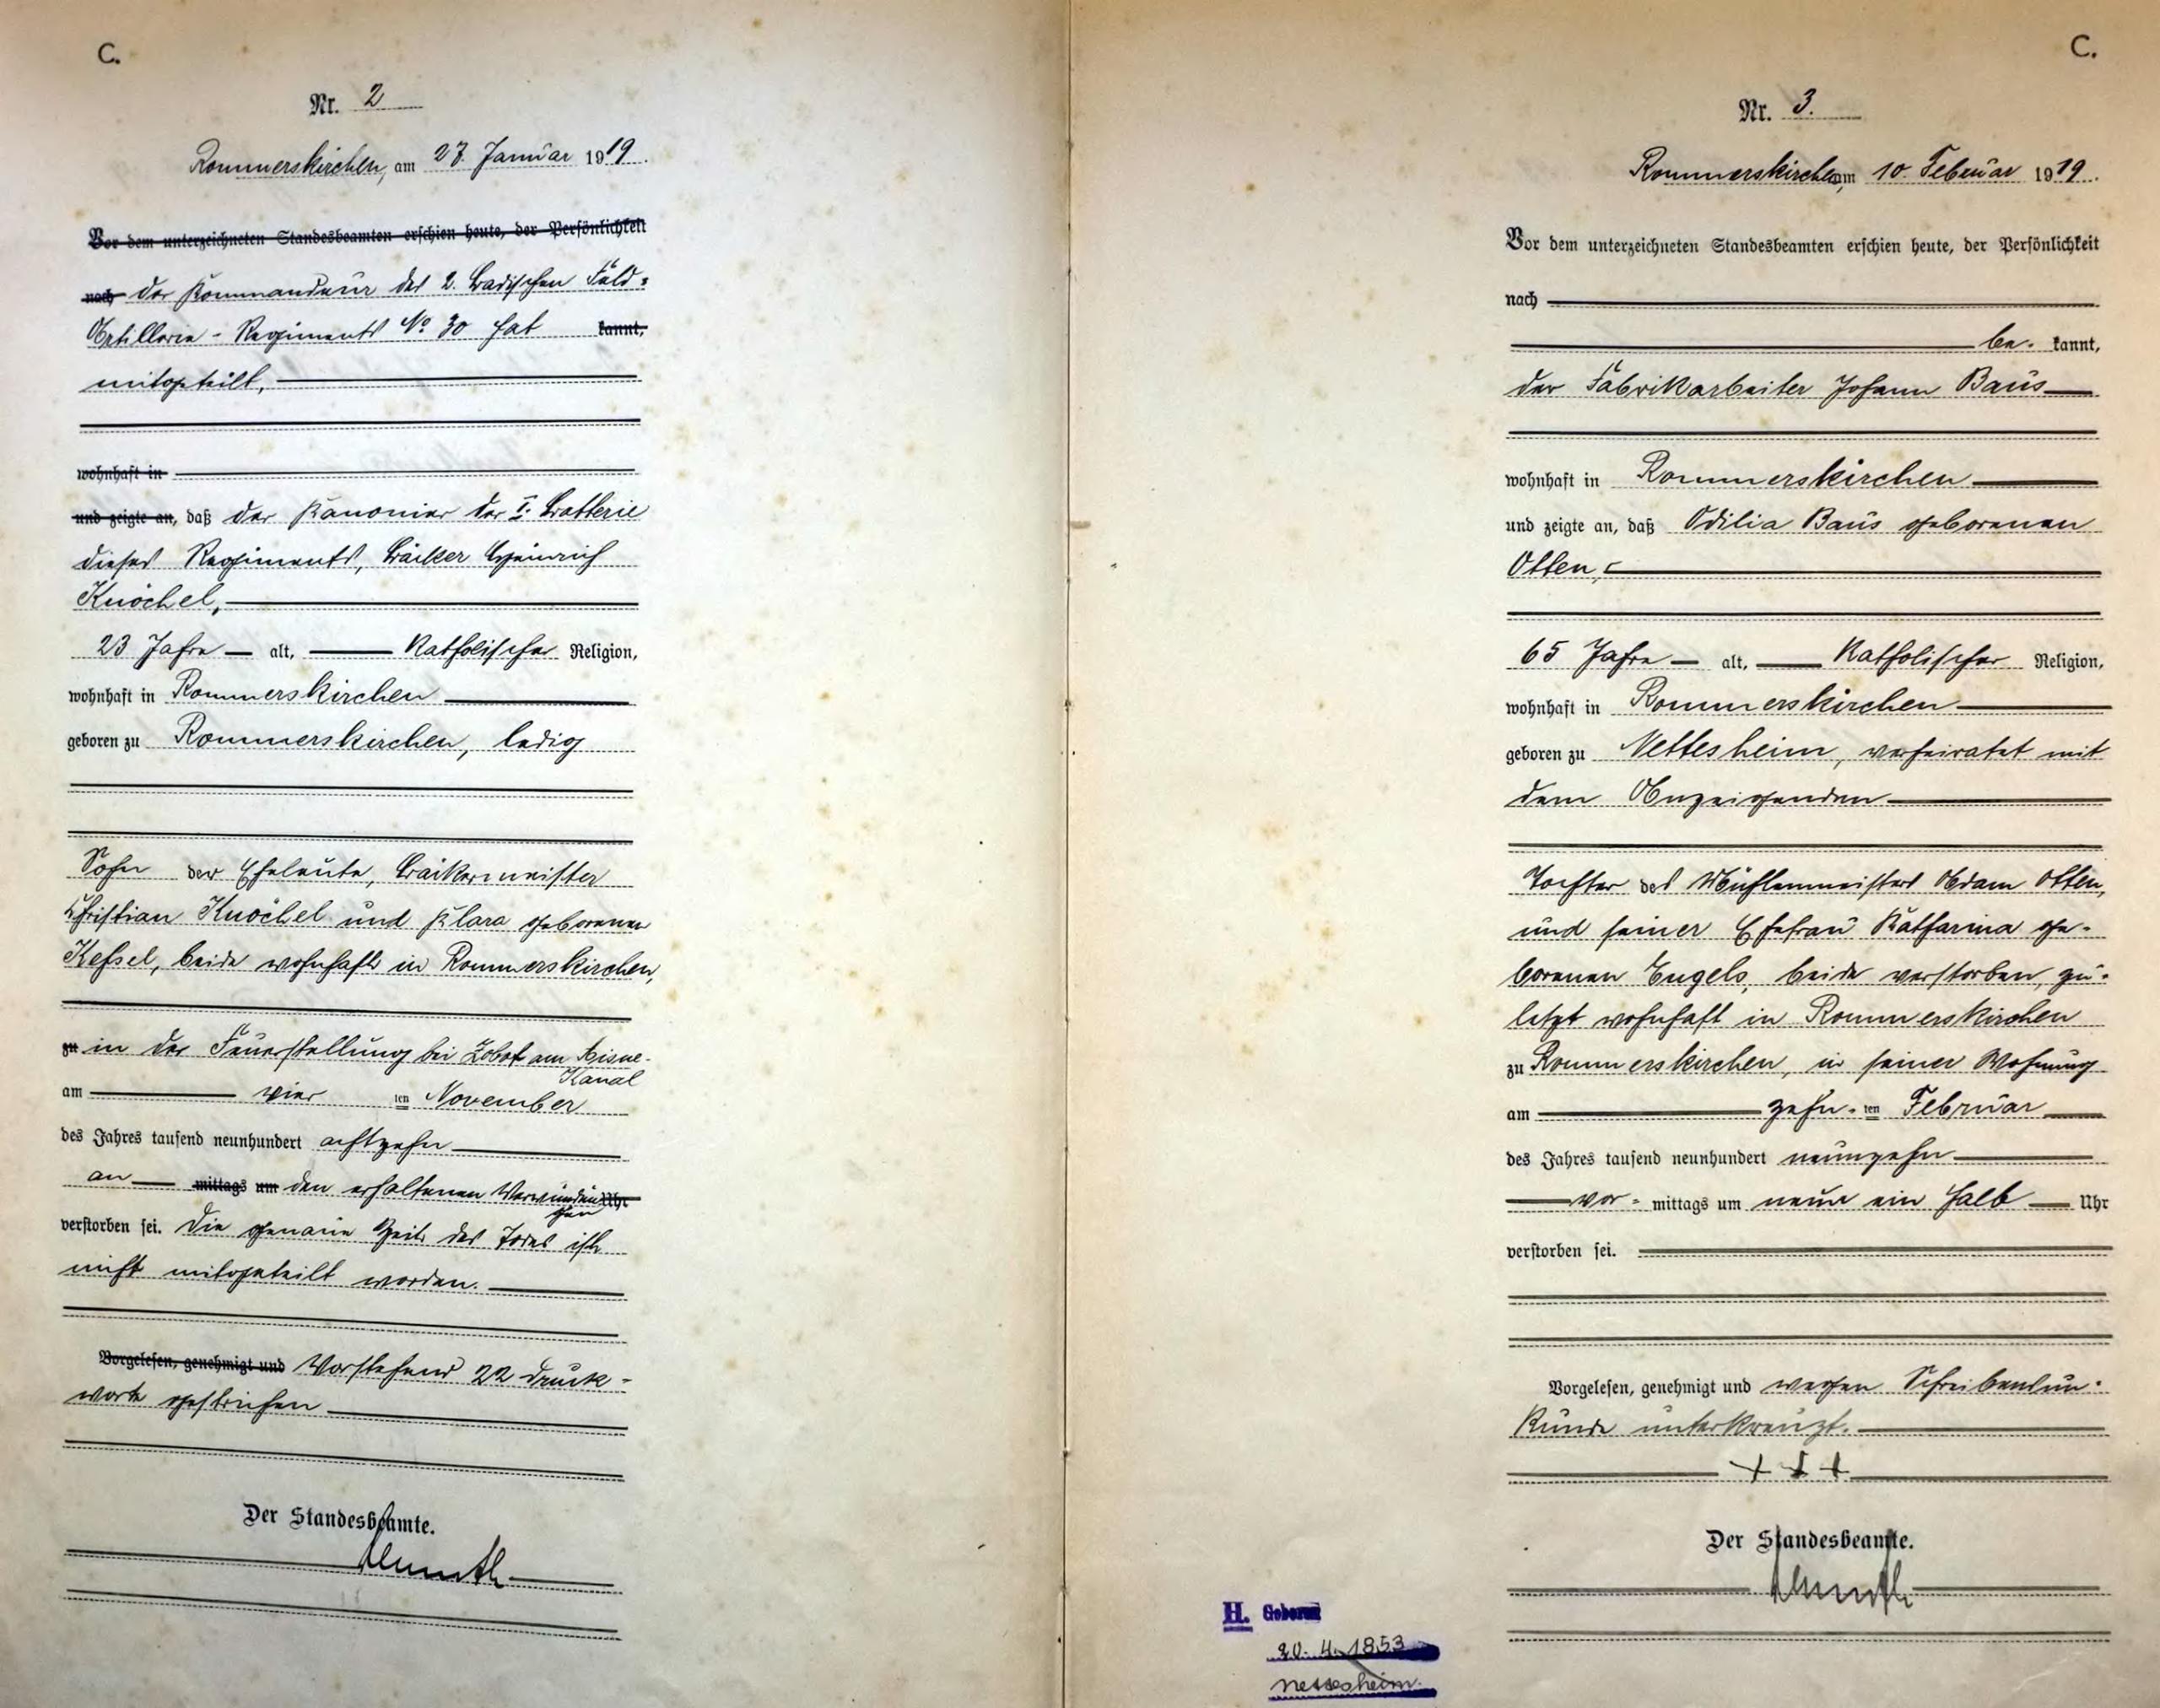 C.
Nr. 2
Rommerskirchen, am 27. Januar 1919.
Vor dem unterzeichneten Standesbeamten erschien heute, der Persönlichkeit
nach der Kommandeur des 2. Badischen Feld=
Artillerie-Regiments No 30 hat kannt,
mitgeteilt,
wohnhaft in
und zeigte an, daß der Kanonier der I. Batterie
dieses Regiments, Bäcker Heinrich
Knöchel,
23 Jahre alt, katholischer Religion,
wohnhaft in Rommerskirchen
geboren zu Rommerskirchen, ledig
Sohn der Eheleute, Bäckermeister
Christian Knöchel und Klara geborenen
Kessel, beide wohnhaft in Rommerskirchen,
zu in der Feuerstellung bei am Aisne-
Kanal
am vier ten November
des Jahres tausend neunhundert achtzehn
an mittags um den erhaltenen Verwundun Uhr
gen
verstorben sei. Die genaue Zeit des Todes ist
nicht mitgeteilt worden.
Vorgelesen, genehmigt und Vorstehend 22 Druck-
worte gestrichen
Der Standesbeamte.
C.
Nr. 3.
Rommerskirchen am 10. Februar 1919.
Vor dem unterzeichneten Standesbeamten erschien heute, der Persönlichkeit
nach
be- kannt,
der Fabrikarbeiter Johann Baus
wohnhaft in Rommerskirchen
und zeigte an, daß Odilia Baus geborenen
Otten,
65 Jahre alt, katholischer Religion,
wohnhaft in Rommerskirchen
geboren zu Nettesheim, verheiratet mit
dem Anzeigenden
Tochter des Mühlenmeisters Adam Otten,
und seiner Ehefrau Katharina ge-
borenen Engels, beide verstorben, zu-
letzt wohnhaft in Rommerskirchen
zu Rommerskirchen, in seiner Wohnung
am zehn-ten Februar
des Jahres tausend neunhundert neunzehn
vor- mittags um neun ein halb Uhr
verstorben sei.
Vorgelesen, genehmigt und wegen Schreibensun-
kunde unterkreuzt.
+ + +
Der Standesbeamte.
H. Geboren
20. 4. 1853
Nettesheim.